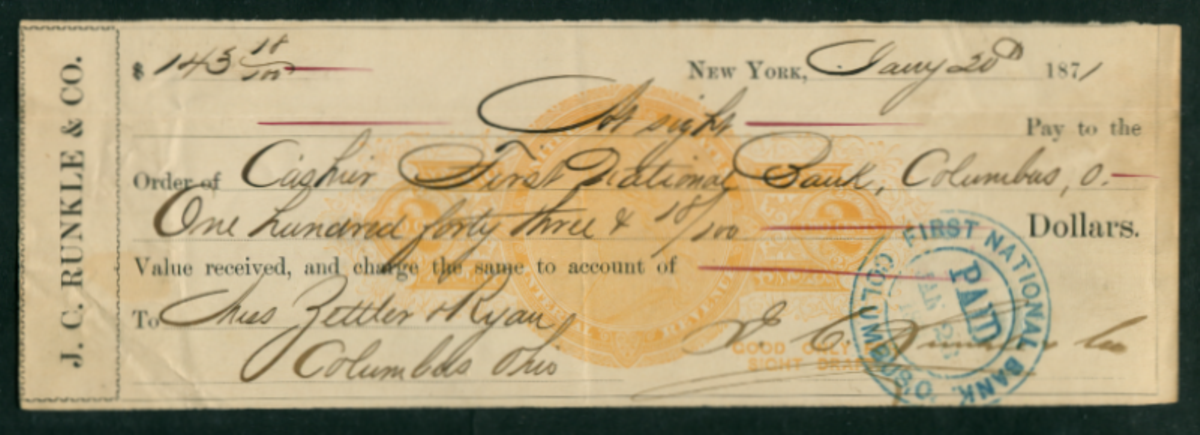 J. C. RUNKLE & CO.
$ 143 18/100
NEW YORK, Jany 20th 1871
At sight Pay to the
Order of Cashier First National Bank, Columbus, O.
One hundred forty three & 18/100 Dollars.
Value received, and charge the same to account of
To Chas Zettler & Ryan
Columbus Ohio
J. C. Runkle & Co
GOOD ONLY
SIGHT DRA
FIRST NATIONAL BANK.
COLUMBUS, O.
PAID
JAN